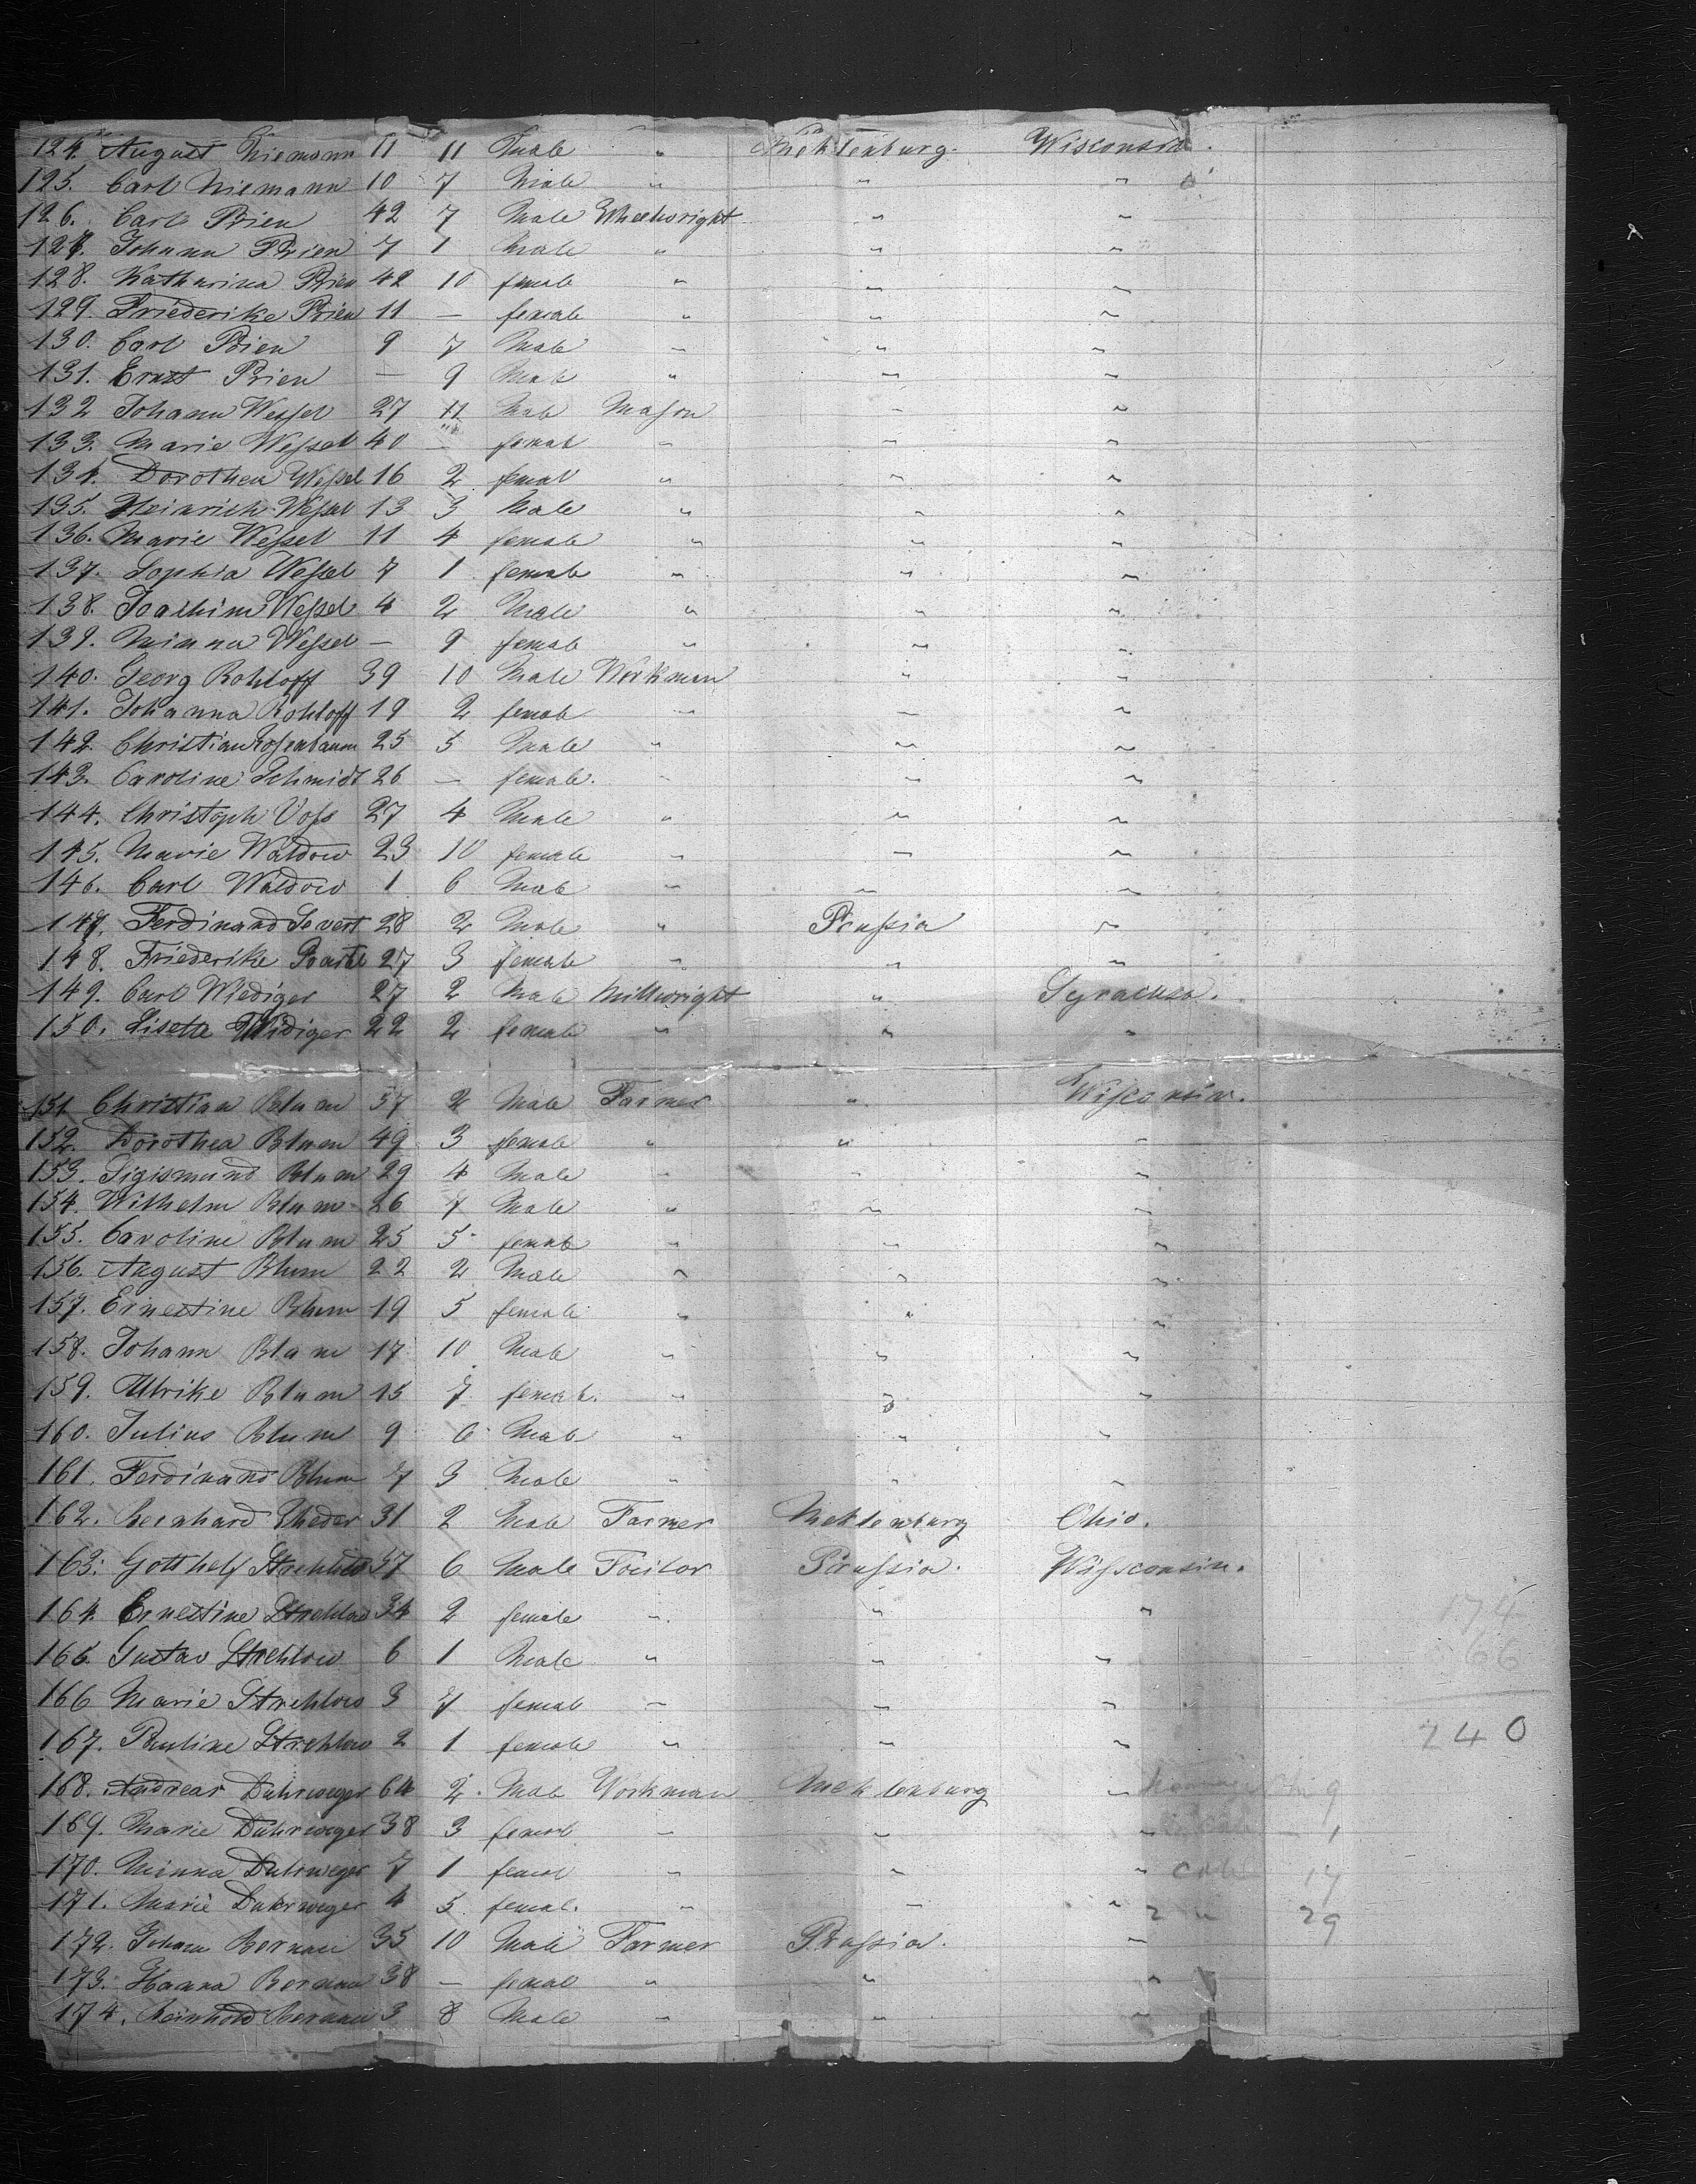 124. August Niemann 11 11 Male " Meklenburg. Wisconsin.
125. Carl Niemann 10 7 Male " " "
126. Carl Prien 42 7 Male Wheelwright " "
127. Johann Prien 7 1 Male " " "
128. Katharina Prien 42 10 female " " "
129. Friederike Prien 11 — female " " "
130. Carl Prien 9 7 Male " " "
131. Ernst Prien — 9 Male " " "
132 Johann Weſsel 27 11 Male Maſon " "
133. Marie Weſsel 40 — female " " "
134. Dorothea Weſsel 16 2 female " " "
135. Heinrich Weſsel 13 3 Male " " "
136. Marie Weſsel 11 4 female " " "
137. Sophia Weſsel 7 1 female " " "
138. Joachim Weſsel 4 2 Male " " "
139. Minna Weſsel — 9 female " " "
140. Georg Rohloff 39 10 Male Workman " "
141. Johanna Rohloff 19 2 female " " "
142. Christian Roſenbaum 25 5 Male " " "
143. Caroline Schmidt 26 — female. " " "
144. Christoph Voſs 27 4 Male " " "
145. Marie Waldow 23 10 female " " "
146. Carl Waldow 1 6 Male " " "
147. Ferdinand 28 2 Male " Pruſsia "
148. Friederike 27 3 female " " "
149. Carl Wiediger 27 2 Male Millwright " Syracusa.
150. Lisette Widiger 22 2 female " " "
151 Christian Blum 57 2 Male Farmer " Wiſconsin.
152. Dorothea Blum 49 3 female " " "
153. Sigismund Blum 29 4 Male " " "
154. Wilhelm Blum 26 7 Male " " "
155. Caroline Blum 25 5 female " " "
156. August Blum 22 2 Male " " "
157. Ernestine Blum 19 5 female " " "
158. Johann Blum 17 10 Male " " "
159. Ulrike Blum 15 7 female. " " "
160. Julius Blum 9 6 Male " " "
161. Ferdinand Blum 7 3 Male " " "
162. Bernhard 31 2 Male Farmer Meklenburg Ohio.
163. Gotthelf Strehlow 37 6 Male Pruſsia. Wiſsconsin.
164. Ernestine Strehlow 34 2 female " " "
165. Gustav Strehlow 6 1 Male " " "
166 Marie Strehlow 3 7 female " " "
167. Pauline Strehlow 2 1 female " " "
168. Andreas Duhrweger 64 2 Male Workman Meklenburg "
169. Marie Duhrweger 38 3 female " " "
170. Minna Duhrweger 7 1 female " " "
171. Marie Duhrweger 4 5 female. " " "
172. Johann Bernau 35 10 Male Farmer Pruſsia. "
173. Hanna Bernau 38 — female " " "
174. Reinhold Bernau 3 8 Male " " "
174
66
240
9
1
17
29